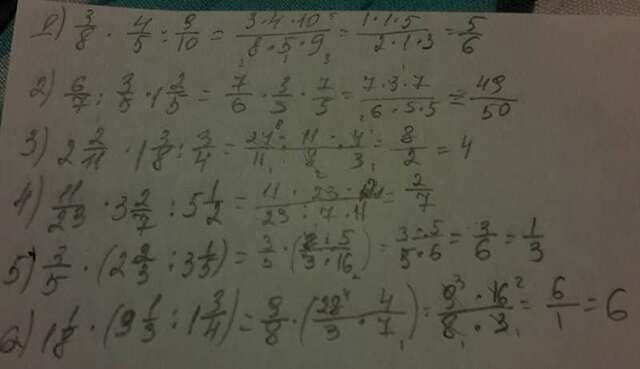 1) 3/8 · 4/5 : 9/10 = 3·4·10/8·5·9 = 1·1·5/2·1·3 = 5/6
2) 6/7 : 3/5 · 1 2/5 = 7/6 · 3/5 · 7/5 = 7·3·7/6·5·5 = 49/50
3) 2 2/11 · 1 3/8 : 3/4 = 24/11 · 11/8 · 4/3 = 8/2 = 4
4) 11/23 · 3 2/7 : 5 1/2 = 11·23·2/23·7·11 = 2/7
5) 3/5 · (2 2/3 : 3 1/5) = 3/5 · (8·5/3·16) = 3·5/5·6 = 3/6 = 1/3
6) 1 1/8 · (9 1/3 : 1 3/4) = 9/8 · (28/3 · 4/7) = 9·16/8·3 = 6/1 = 6